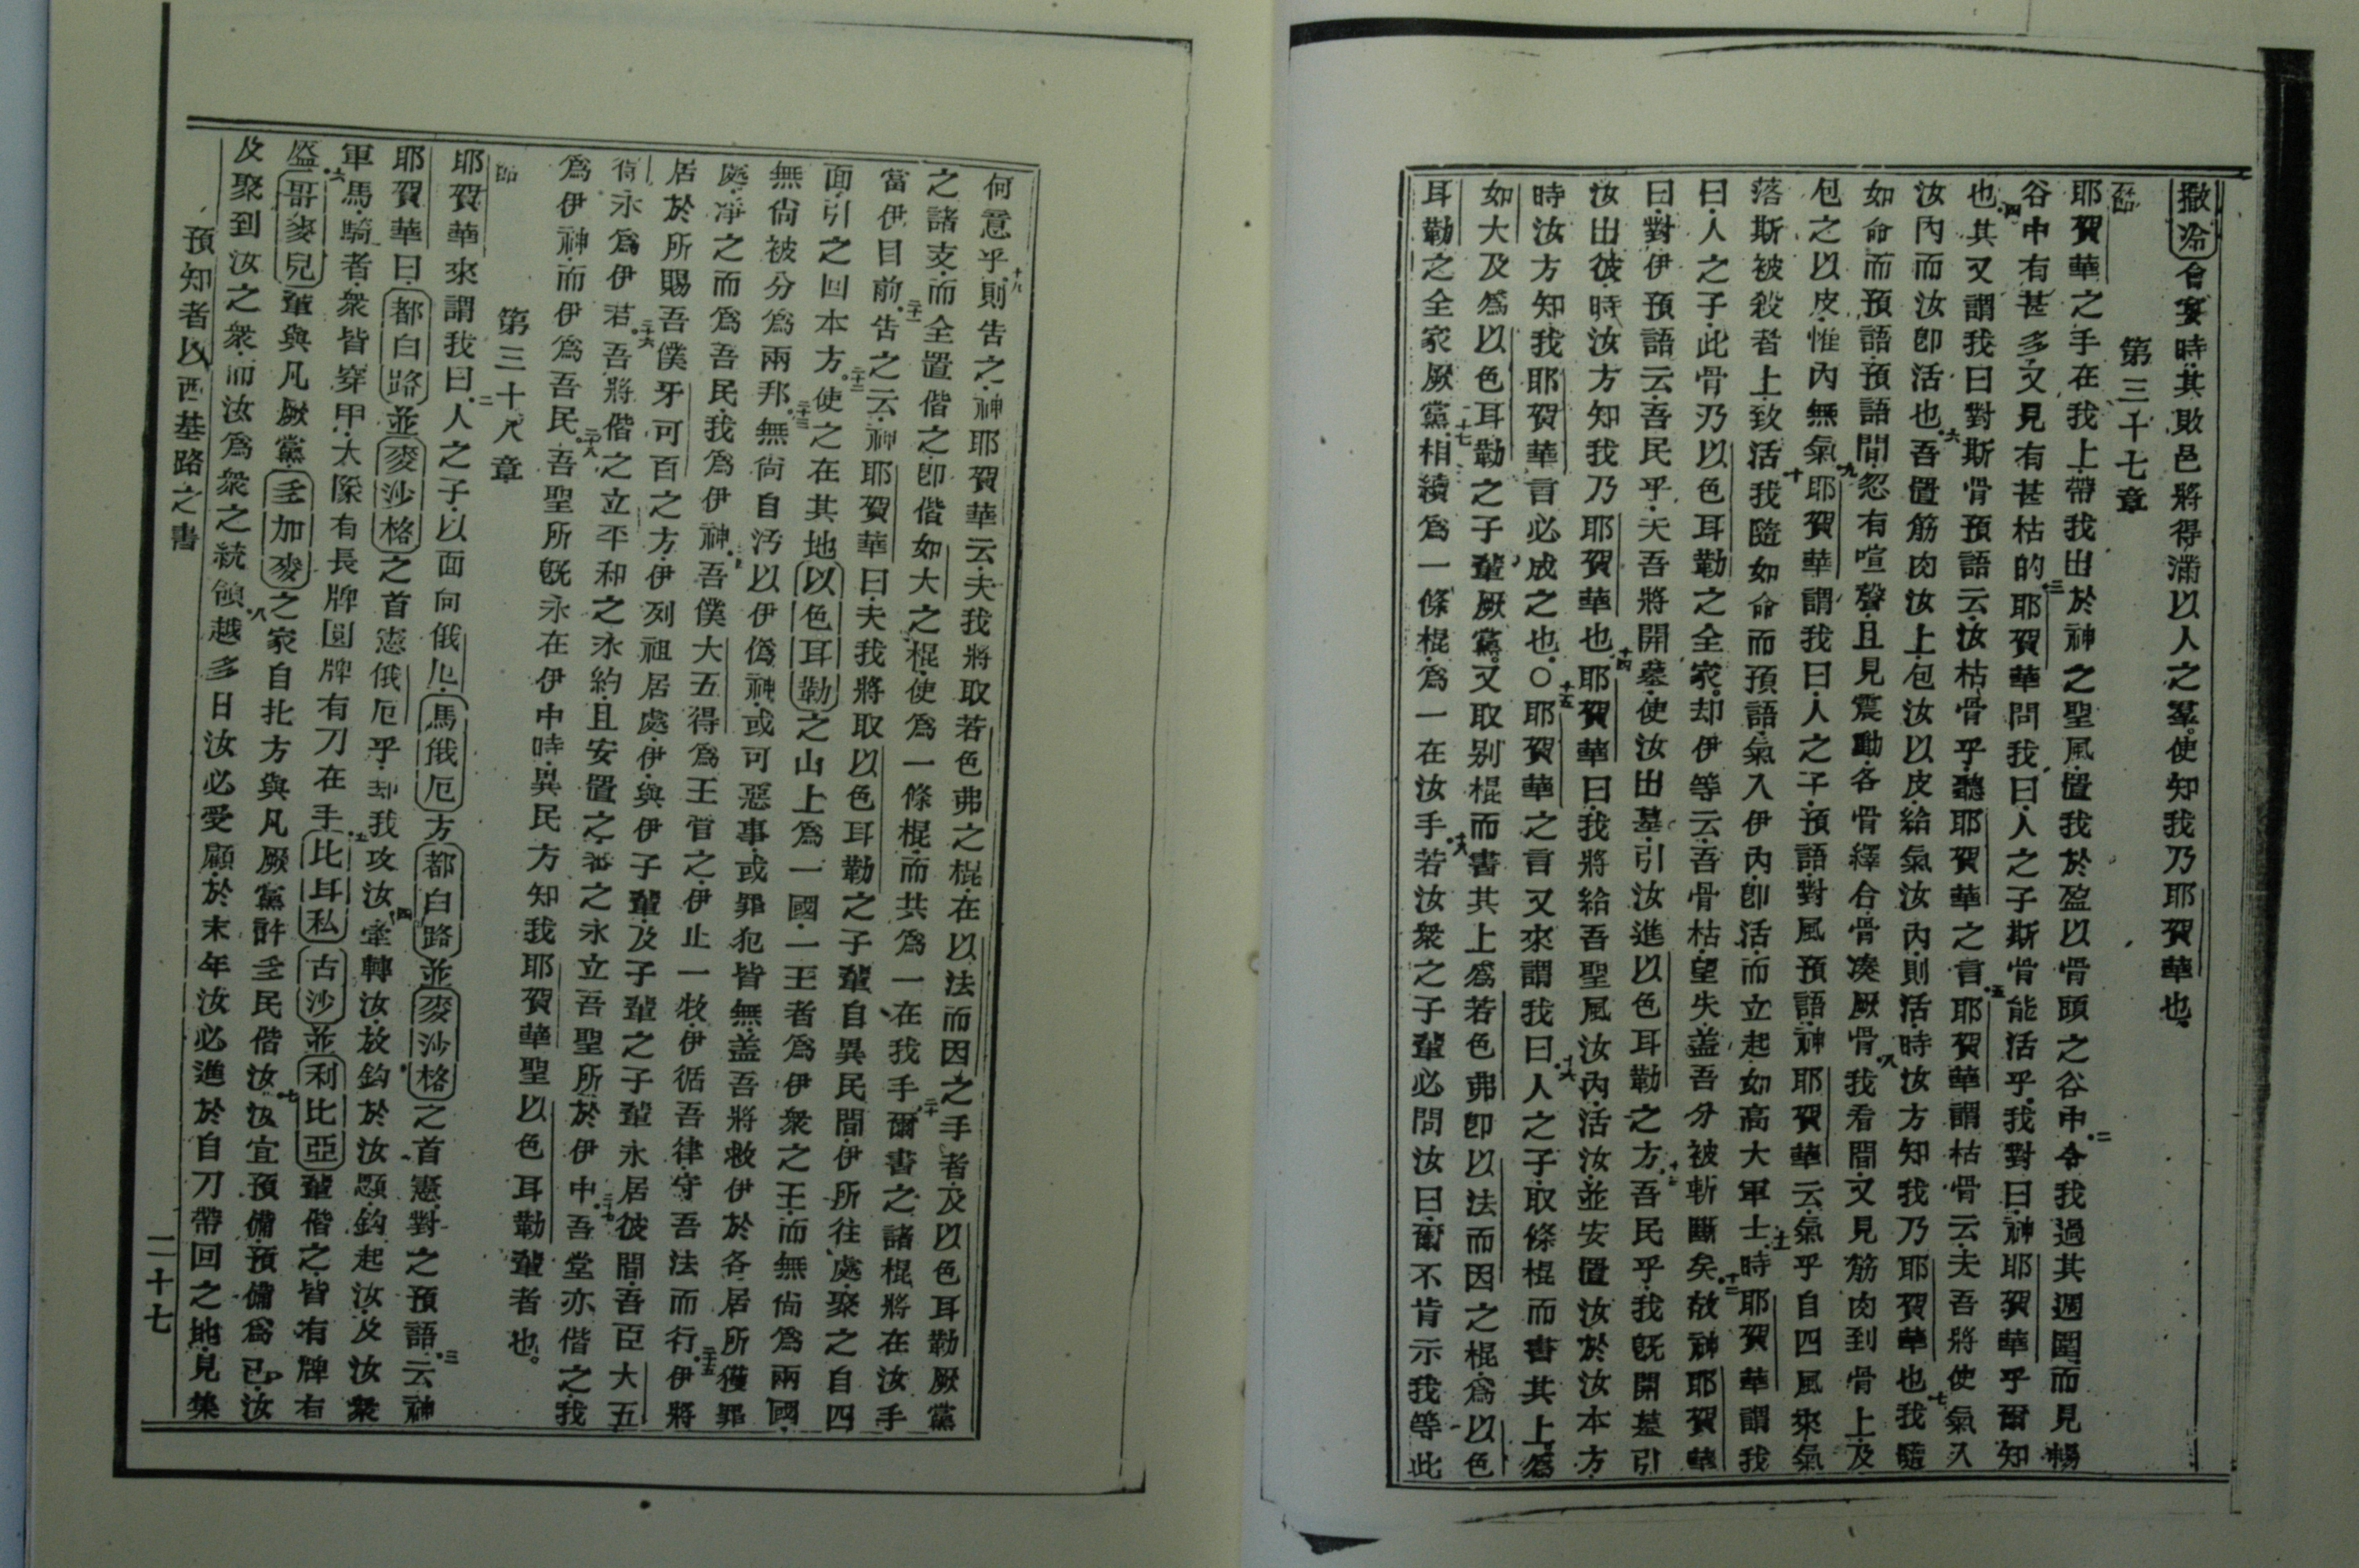 撒冷會宴時其敗邑將得滿以人之羣使知我乃耶賀華也
第三十七章
節耶賀華之手在我上帶我出於神之聖風置我於盈以骨頭之谷中二令我過其週圍而見暢
谷中有甚多又見有甚枯的三耶賀華問我曰人之子斯骨能活乎我對曰神耶賀華乎爾知
也四其又謂我曰對斯骨預語云汝枯骨乎聽耶賀華之言五耶賀華謂枯骨云夫吾將使氣入
汝內而汝卽活也六吾置筋肉汝上包汝以皮給氣汝內則活時汝方知我乃耶賀華也七我隨
如命而預語預語間忽有喧聲且見震動各骨繹合骨湊厥骨八我看間又見筋肉到骨上及
包之以皮惟內無氣九耶賀華謂我曰人之子預語對風預語神耶賀華云氣乎自四風來氣
落斯被殺者上致活十我隨如命而預語氣入伊內卽活而立起如高大軍士十一時耶賀華謂我
曰人之子此骨乃以色耳勒之全家却伊等云吾骨枯望失盖吾分被斬斷矣十二故神耶賀華
曰對伊預語云吾民乎夫吾將開墓使汝出墓引汝進以色耳勒之方十三吾民乎我旣開墓引
汝出彼時汝方知我乃耶賀華也十四耶賀華曰我將給吾聖風汝內活汝並安置汝於汝本方
時汝方知我耶賀華言必成之也〇十五耶賀華之言又來謂我曰十六人之子取條棍而書其上爲
如大及爲以色耳勒之子輩厥黨又取别棍而書其上爲若色弗卽以法而因之棍爲以色
耳勒之全家厥黨十七相續爲一條棍爲一在汝手十八若汝衆之子輩必問汝曰爾不肯示我等此
何意乎十九則告之神耶賀華云夫我將取若色弗之棍在以法而因之手者及以色耳勒厥黨
之諸支而全置偕之卽偕如大之棍使爲一條棍而共爲一在我手二十爾書之諸棍將在汝手
當伊目前二十一告之云神耶賀華曰夫我將取以色耳勒之子輩自異民間伊所往處聚之自四
面引之回本方二十二使之在其地以色耳勒之山上爲一國一王者爲伊衆之王而無尙爲兩國
無尙被分爲兩邦二十三無尙自汚以伊僞神或可惡事或罪犯皆無盖吾將救伊於各居所獲罪
處凈之而爲吾民我爲伊神二十四吾僕大五得爲王管之伊止一牧伊循吾律守吾法而行二十五伊將
居於所賜吾僕牙可百之方伊列祖居處伊與伊子輩及子輩之子輩永居彼間吾臣大五
得永爲伊君二十六吾將偕之立平和之永約且安置之番之永立吾聖所於伊中二十七吾堂亦偕之我
爲伊神而伊爲吾民二十八吾聖所旣永在伊中時異民方知我耶賀華聖以色耳勒輩者也
第三十八章
節耶賀華來謂我曰二人之子以面向俄厄馬俄厄方都白路並麥沙格之首憲對之預語三云神
耶賀華曰都白路並麥沙格之首憲俄厄乎却我攻汝四牽轉汝放鈎於汝顋鈎起汝及汝衆
軍馬騎者衆皆穿甲大隊有長牌圓牌有刀在手五比耳私古沙並利比亞輩偕之皆有牌有
盔六哥麥兒輩與凡厥黨多加麥之家自北方與凡厥黨許多民偕汝七汝宜預備預備爲已汝
及聚到汝之衆而汝爲衆之統領八越多日汝必受顧於末年汝必進於自刀帶回之地見集
預知者以西基路之書 二十七